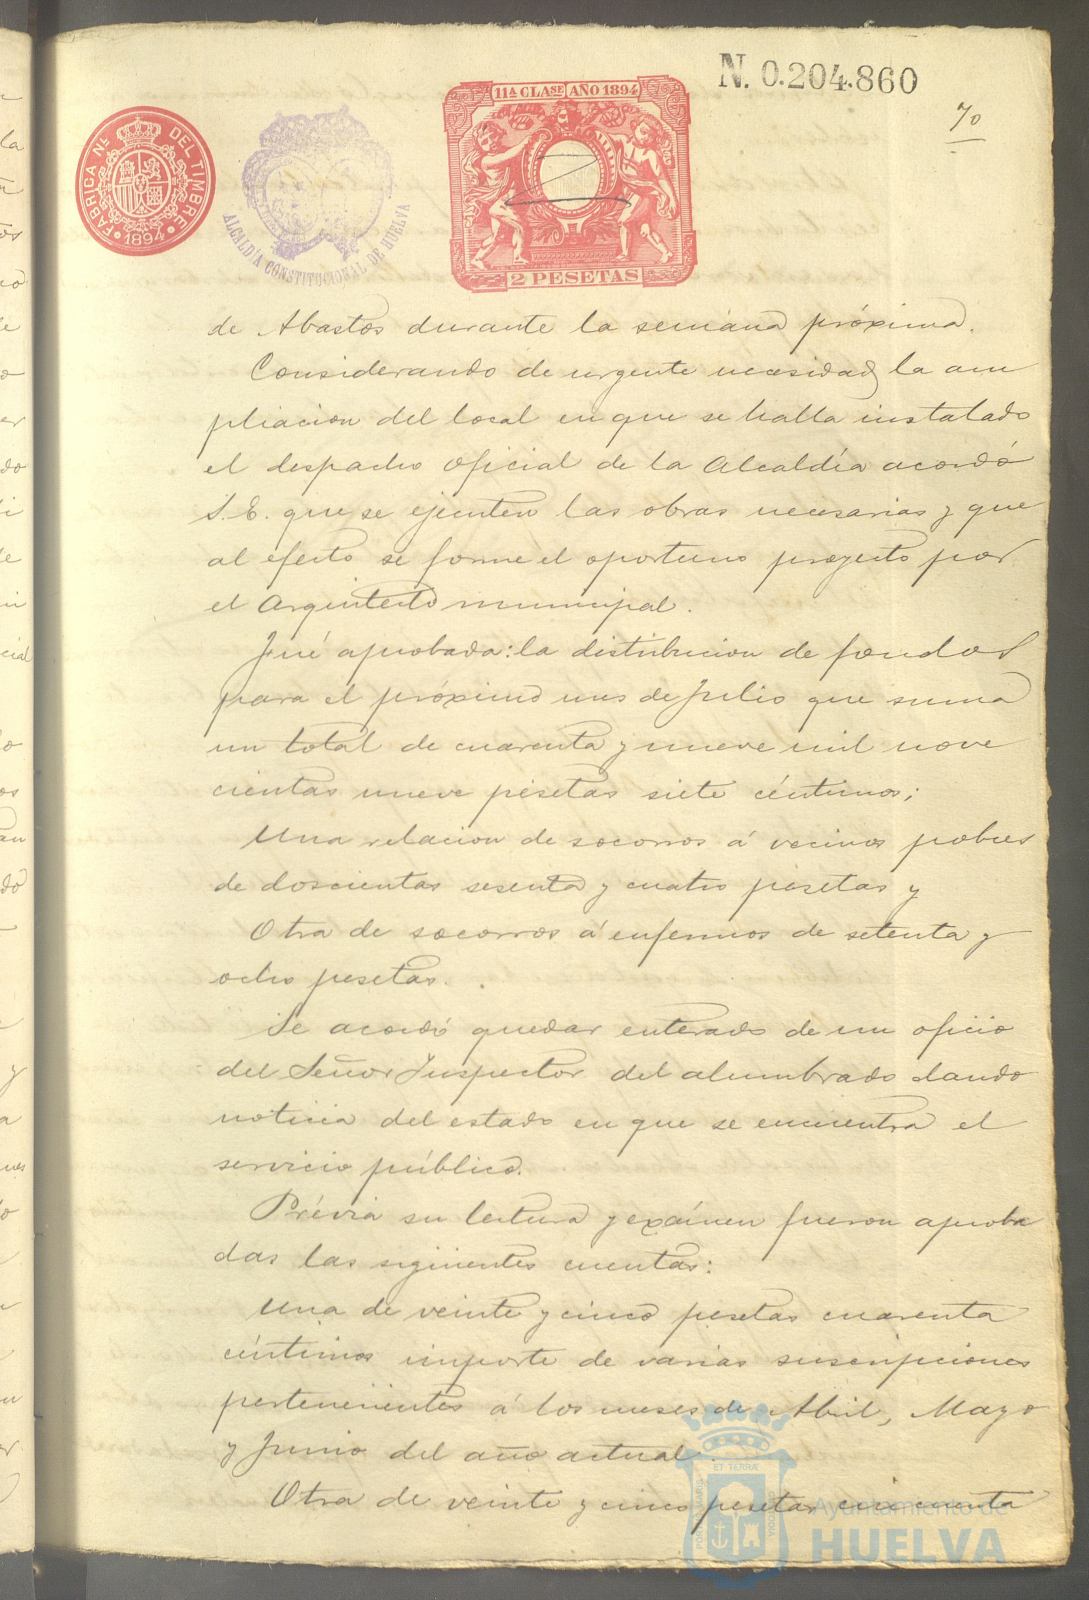 N. 0.204.860
70
FÁBRICA Nᴸ DEL TIMBRE
1894
ALCALDÍA CONSTITUCIONAL DE HUELVA
11ª CLASE AÑO 1894
2 PESETAS
de Abastos durante la semana próxima.
Considerando de urgente necesidad la am
pliacion del local en que se halla instalado
el despacho oficial de la Alcaldía acordó
S. E. que se ejecuten las obras necesarias y que
al efecto se forme el oportuno proyecto por
el Arquitecto municipal.
Fué aprobada: la distribucion de fondos
para el próximo mes de Julio que suma
un total de cuarenta y nueve mil nove
cientas nueve pesetas siete céntimos;
Una relacion de socorros á vecinos pobres
de doscientas sesenta y cuatro pesetas y
Otra de socorros á enfermos de setenta y
ocho pesetas.
Se acordó quedar enterado de un oficio
del Señor Inspector del alumbrado dando
noticia del estado en que se encuentra el
servicio público.
Prévia su lectura y exámen fueron aproba
das las siguientes cuentas:
Una de veinte y cinco pesetas cuarenta
céntimos importe de varias suscripciones
pertenecientes á los meses de Abril, Mayo
y Junio del año actual.
Otra de veinte y cinco pesetas cincuenta
Ayuntamiento de
HUELVA